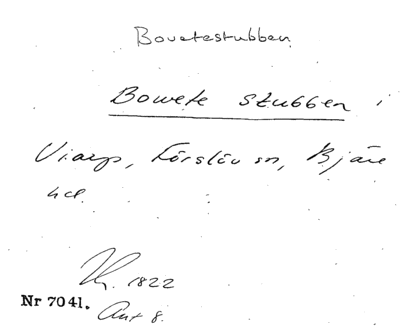 Bovetestubben
Bowete stubben i
Viarp, Förslöv sn, Bjäre
hd.
1822
Nr 7041. Akt 8.